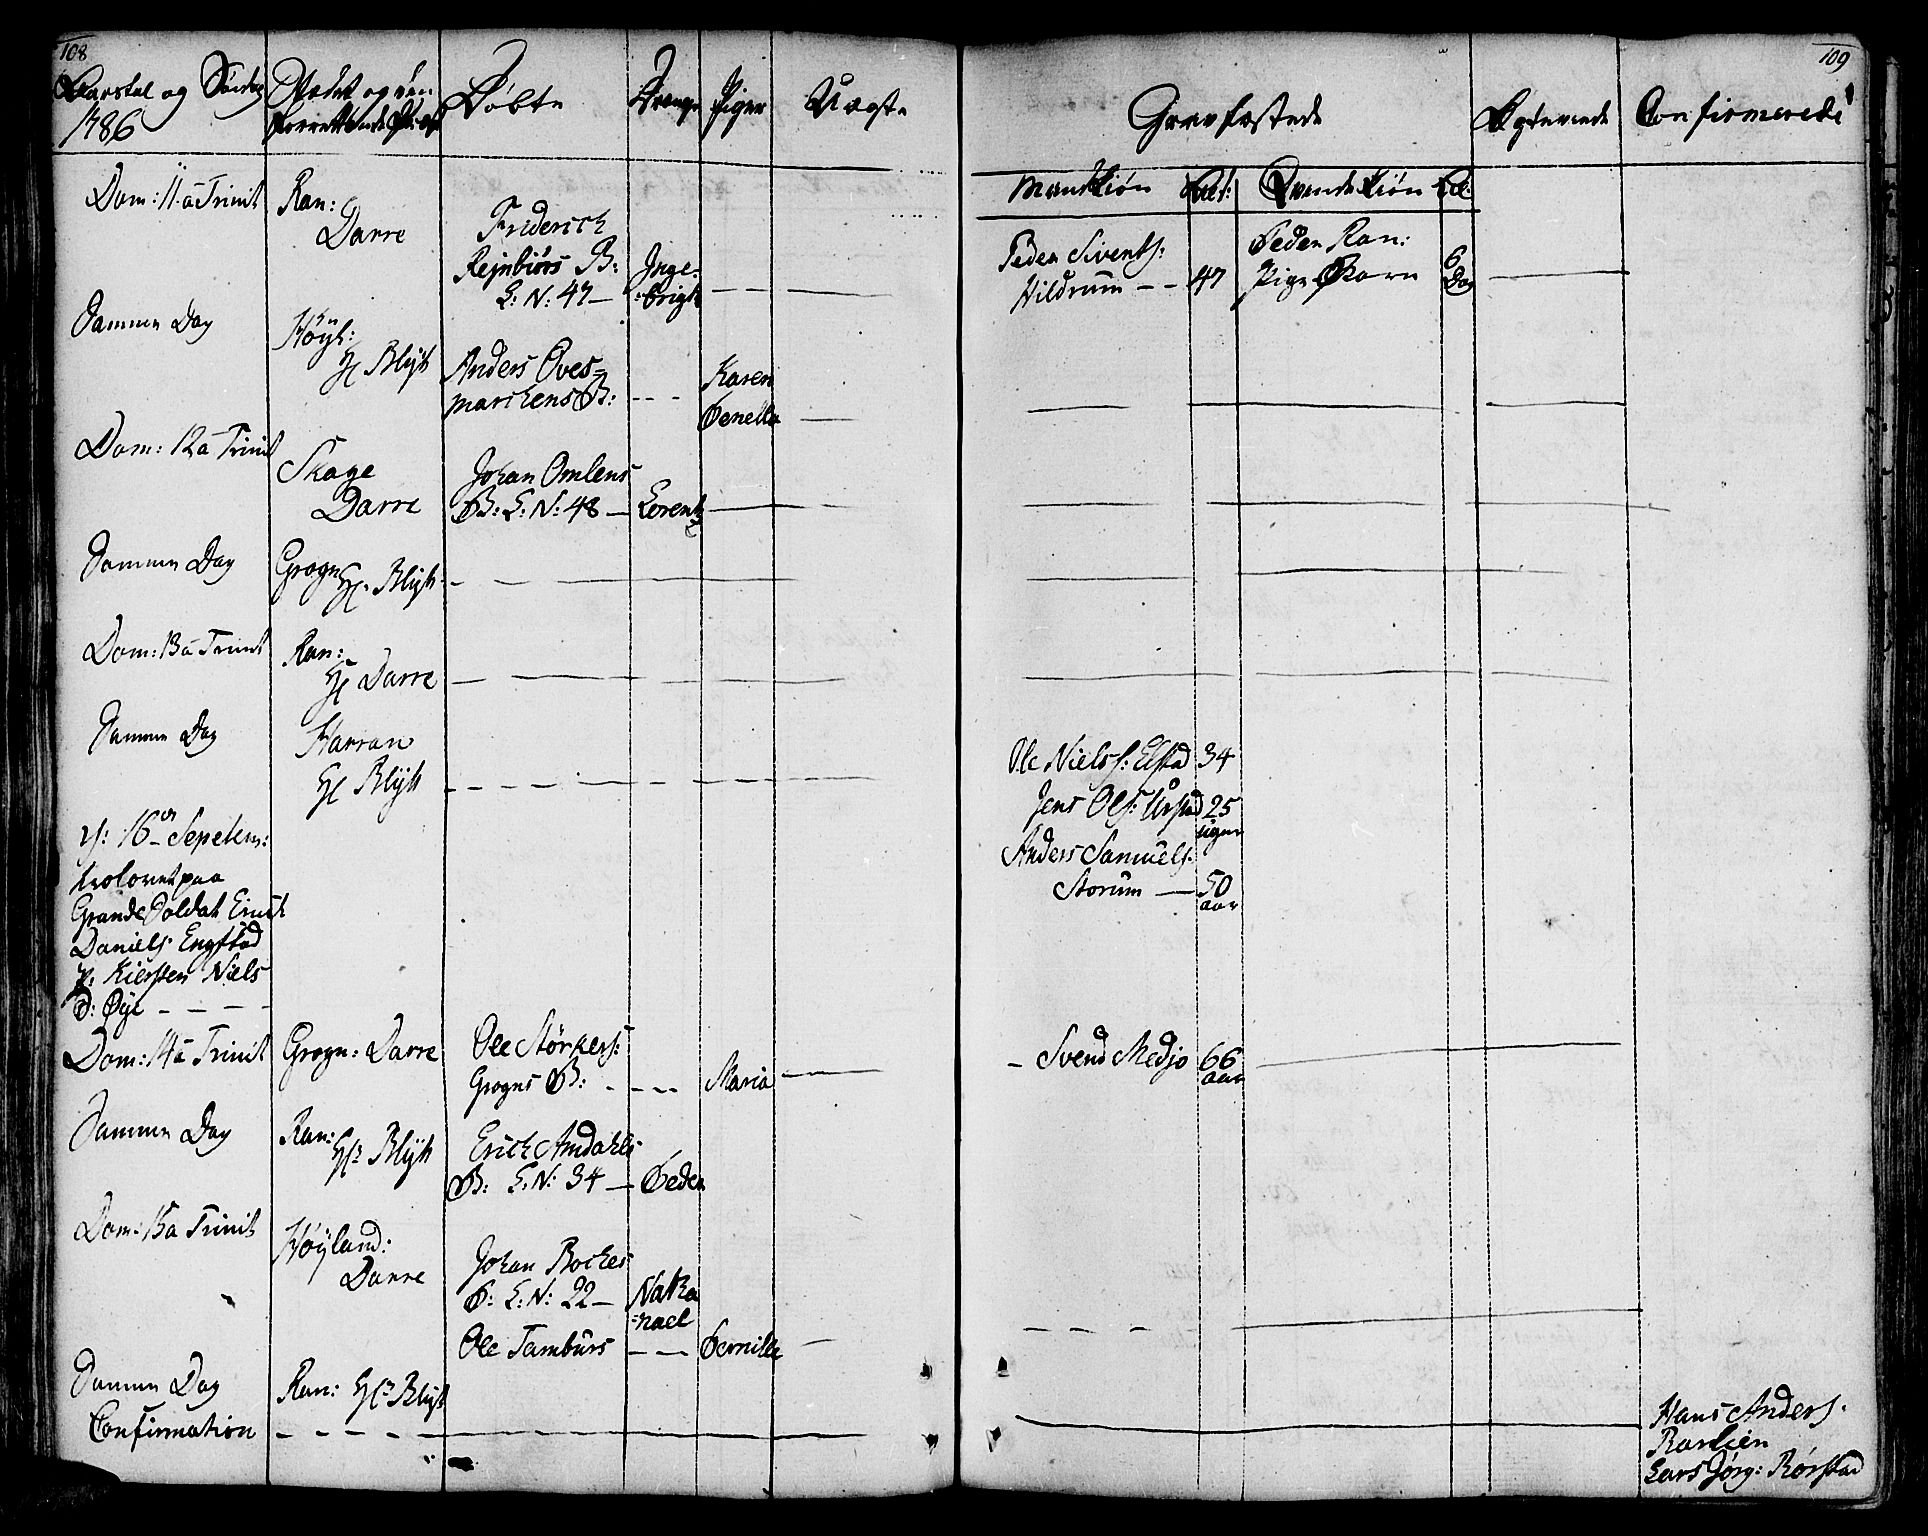 108
Aarstal og Søndag
1786
Stædet og den
Forrettende Præst
Døbte
Drenge
Piger
Uægte
Dom: 11 a Trinit
Ran:
Darre
Friderich
Rejnbiørs B:
L: N: 47 —
Inge:
:brigt
Samme Day
Høyl:
Hr Blyk
Anders Oves=
marchens B:
Karen
Penella
Dom: 12 a Trinit
Skage
Darre
Johan Omlens
B: L: N: 48 —
Lorentz
Samme Day
Grogn
Hr. Blyk
Dom: 13 a Trinit
Ran:
Hr Darre
Samme Day
Harran
Hr Blyk
d: 16de Septem:
trolovet paa
Grande Soldat Erich
Daniels. Engstad
p: Kiersten Niels
D: Øye
Dom: 14 a Trinit
Grogn: Darre
Ole Størkers:
Grogns B:
Maria
Samme Day
Ran:
Hr: Blyk
Erich Amdahls
B: L: N: 34 —
Peder
Dom: 15 a Trinit
Høyland:
Darre
Johan Boches
B: L: N: 22 —
Natha
=nael
Ole Tambürs
Pernille
Samme Day
Ran: Hr: Blyk
Confirmation
109
Gravfæstede
Confirmerede
Mandkiøn
Aar:
Qvindekiøn
Peder Sivents:
Hildrum — — 47
Peder Ran:
Pige Barn
6
Day
Ole Niels s: Elstad 34
Jens Ols: Urstad 25
uger
Anders Samuels.
Storum — 50
aar
Svend Medjo 66
aar
Hans Anders.
Ranlien
Lars Jørg: Rørstad